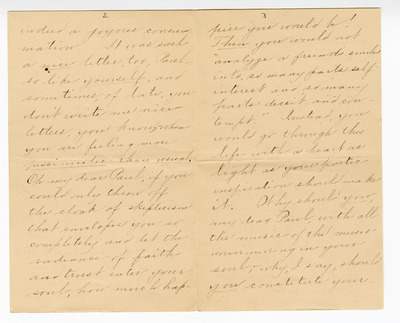 2
indeed a joyous consum-
mation. It was such
a nice letter too, Paul,
so like yourself, and
sometimes of late, you
don't write me nice
letters, you know, when
you are feeling more
pessimistic than usual.
Oh my dear Paul, if you
could only throw off
the cloak of skepticism
that envelopes you so
completely and let the
radiance of faith
and trust enter your
soul, how much hap-
3
pier you would be!
Then you would not
"analyze a friend's smiles
into, so many parts self
interest and so many
parts deceit and con-
tempt." Instead, you
would go through this
life with a heart as
light as your poetic
inspiration should make
it. Why should you,
my dear Paul, with all
the music of the muses
murmuring in your
soul, why, I say, should
you constitute your